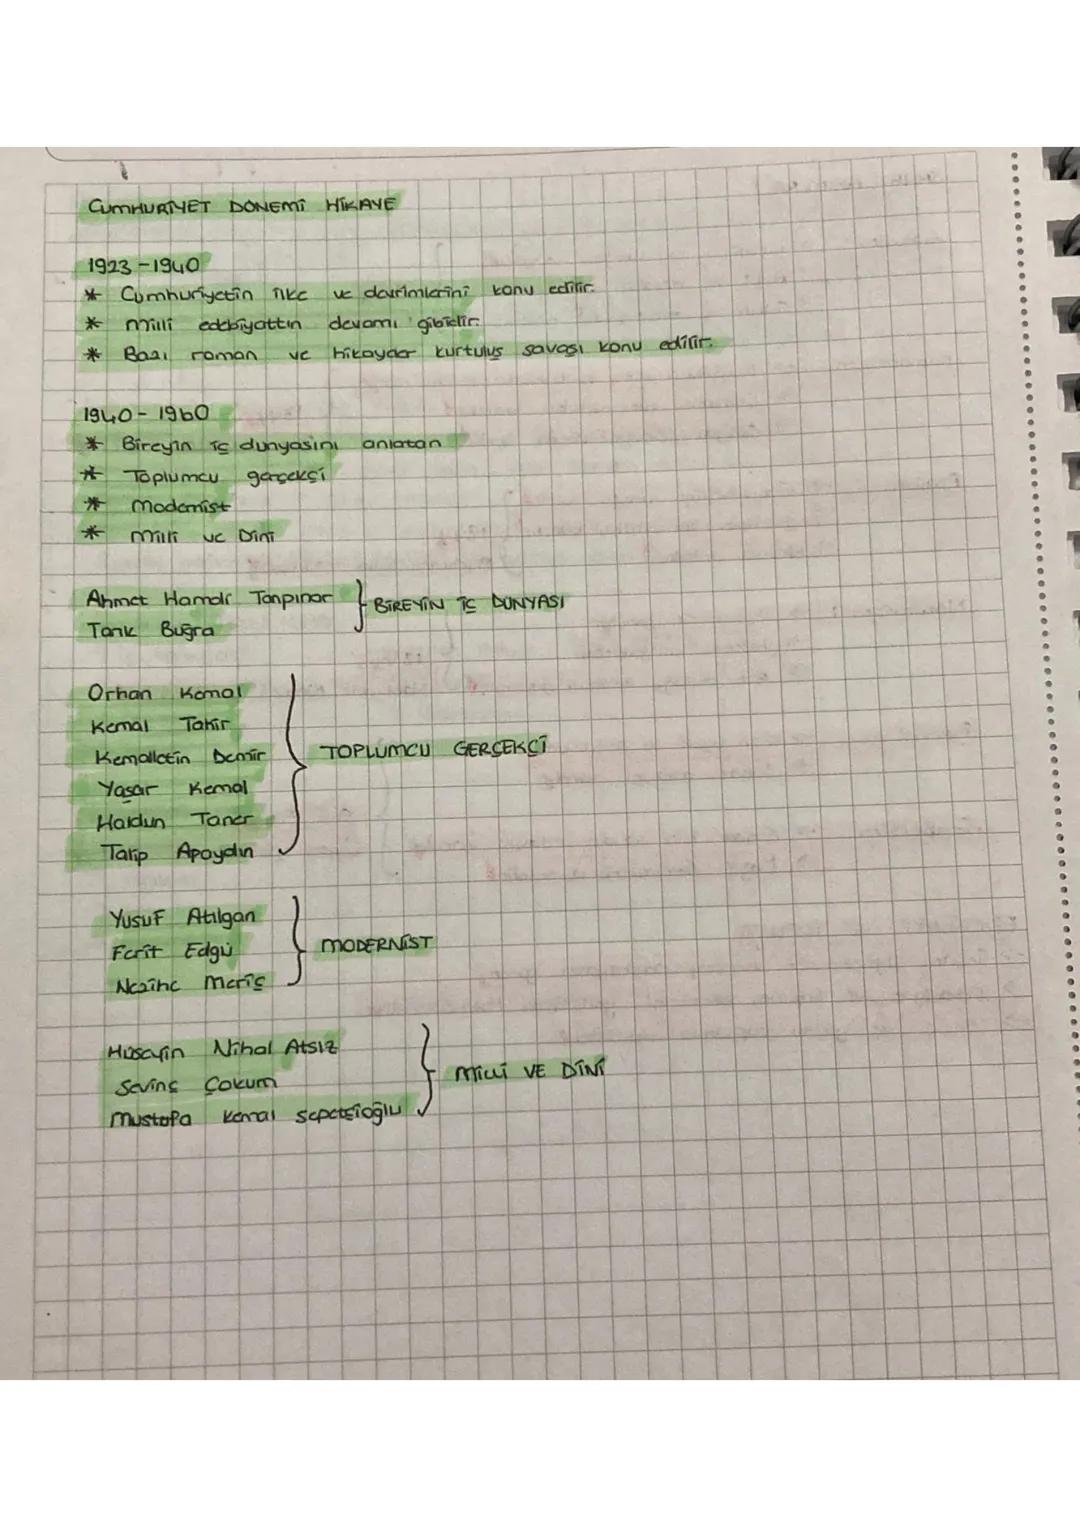 CUMHURİYET DÖNEMİ HİKAYE
1923-1940
* Cumhuriyetin ilke ve devrimlerini konu edilir.
* Milli edebiyattın devamı gibidir.
* Bazı roman ve hikayeler kurtuluş savaşı konu edilir.
1940-1960
* Bireyin iç dünyasını anlatan
* Toplumcu gerçekçi
* Modernist
* Milli ve Dini
Ahmet Hamdi Tanpınar
Tarık Buğra
BİREYİN İÇ DÜNYASI
Orhan Kemal
Kemal Tahir
Kemalletin Demir
Yaşar Kemal
Haldun Taner
Talip Apaydın
TOPLUMCU GERÇEKÇİ
Yusuf Atılgan
Ferit Edgü
Nezihe Meriç
MODERNİST
Hüseyin Nihal Atsız
Sevinç Çokum
Mustafa Kemal Sepetçioğlu
MİLLİ VE DİNİ